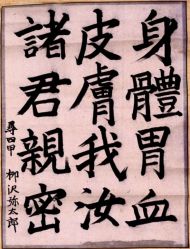 身體胃血
皮膚我汝
諸君親密
尋四甲 柳沢弥太郎